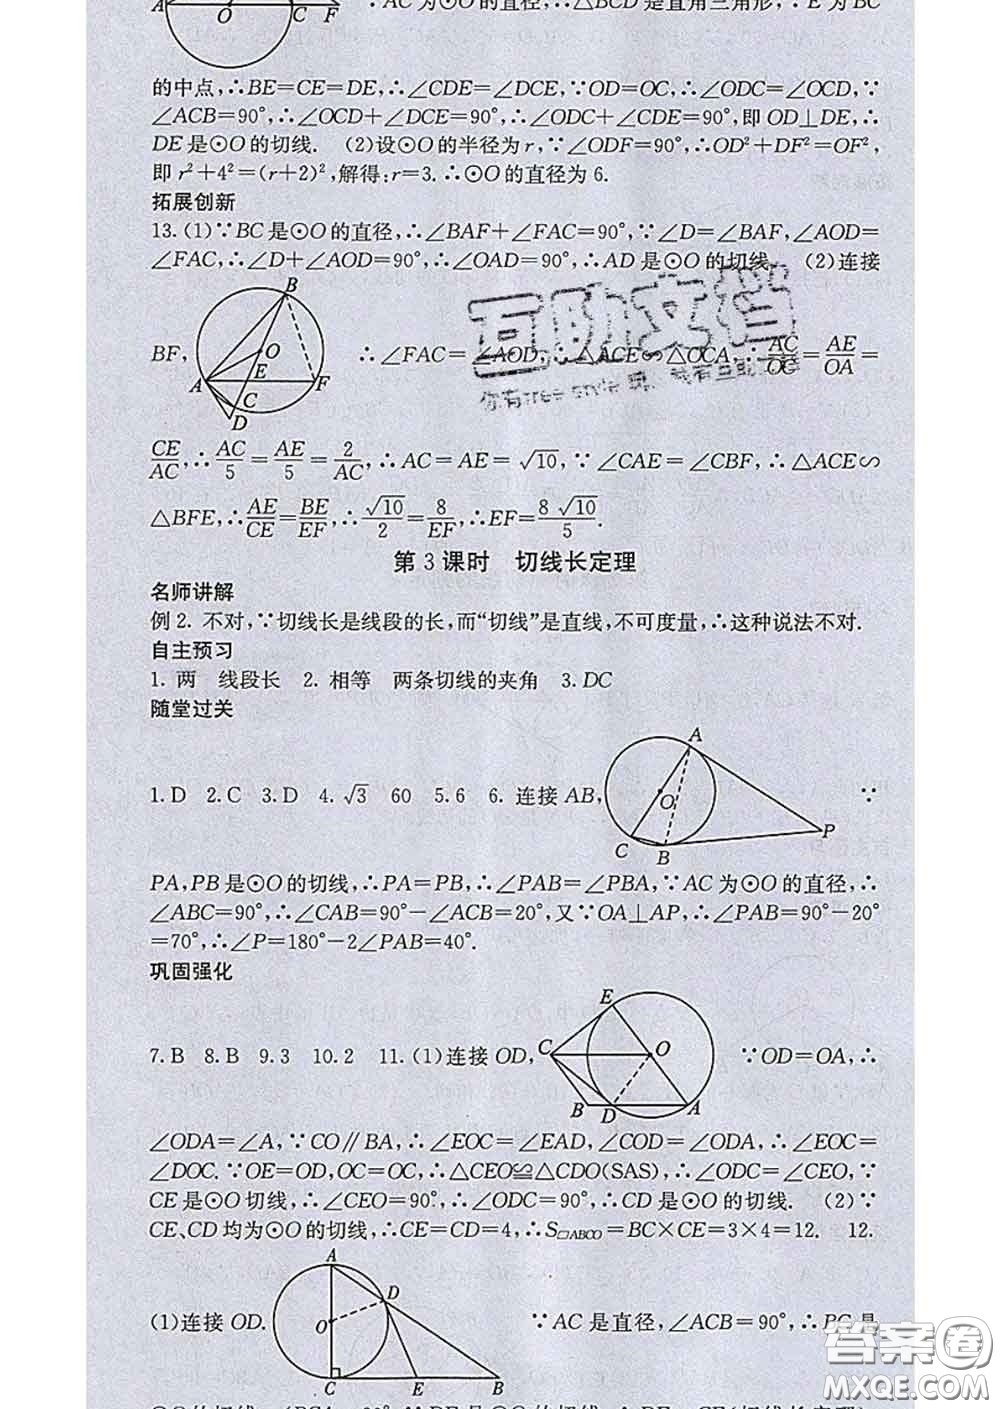 ∵AC 为⊙O 的直径,∴△BCD 是直角三角形,∵E 为 BC
A O C F
的中点,∴BE=CE=DE,∴∠CDE=∠DCE,∵OD=OC,∴∠ODC=∠OCD,∵
∠ACB=90°,∴∠OCD+∠DCE=90°,∴∠ODC+∠CDE=90°,即 OD⊥DE,∴
DE 是⊙O 的切线. (2)设⊙O 的半径为 r,∵∠ODF=90°,∴OD²+DF²=OF²,
即 r²+4²=(r+2)²,解得:r=3.∴⊙O 的直径为 6.
拓展创新
13.(1)∵BC 是⊙O 的直径,∴∠BAF+∠FAC=90°,∵∠D=∠BAF,∠AOD=
∠FAC,∴∠D+∠AOD=90°,∴∠OAD=90°,∴AD 是⊙O 的切线. (2)连接
BF, ∴∠FAC=∠AOD,∴△ACE∽△OCA,∴AC/OC=AE/OA=
B O E A F C D
互助文档
CE/AC,∴AC/5=AE/5=2/AC,∴AC=AE=√10,∵∠CAE=∠CBF,∴△ACE∽
△BFE,∴AE/CE=BE/EF,∴√10/2=8/EF,∴EF=8√10/5.
第 3 课时 切线长定理
名师讲解
例 2. 不对,∵切线长是线段的长,而“切线”是直线,不可度量,∴这种说法不对.
自主预习
1. 两 线段长 2. 相等 两条切线的夹角 3. DC
随堂过关
1.D 2.C 3.D 4.√3 60 5.6 6. 连接 AB, ∵
A O C B P
PA,PB 是⊙O 的切线,∴PA=PB,∴∠PAB=∠PBA,∵AC 为⊙O 的直径,∴
∠ABC=90°,∴∠CAB=90°-∠ACB=20°,又∵OA⊥AP,∴∠PAB=90°-20°
=70°,∴∠P=180°-2∠PAB=40°.
巩固强化
7.B 8.B 9.3 10.2 11.(1)连接 OD, ∵OD=OA,∴
E C O B D A
∠ODA=∠A,∵CO∥BA,∴∠EOC=∠EAD,∠COD=∠ODA,∴∠EOC=
∠DOC.∵OE=OD,OC=OC,∴△CEO≌△CDO(SAS),∴∠ODC=∠CEO,∵
CE 是⊙O 切线,∴∠CEO=90°,∴∠ODC=90°,∴CD 是⊙O 的切线. (2)∵
CE、CD 均为⊙O 的切线,∴CE=CD=4,∴S□ABCO=BC×CE=3×4=12. 12.
(1)连接 OD. ∵AC 是直径,∠ACB=90°,∴BC 是
A D O C E B
答案圈
MXQE.COM